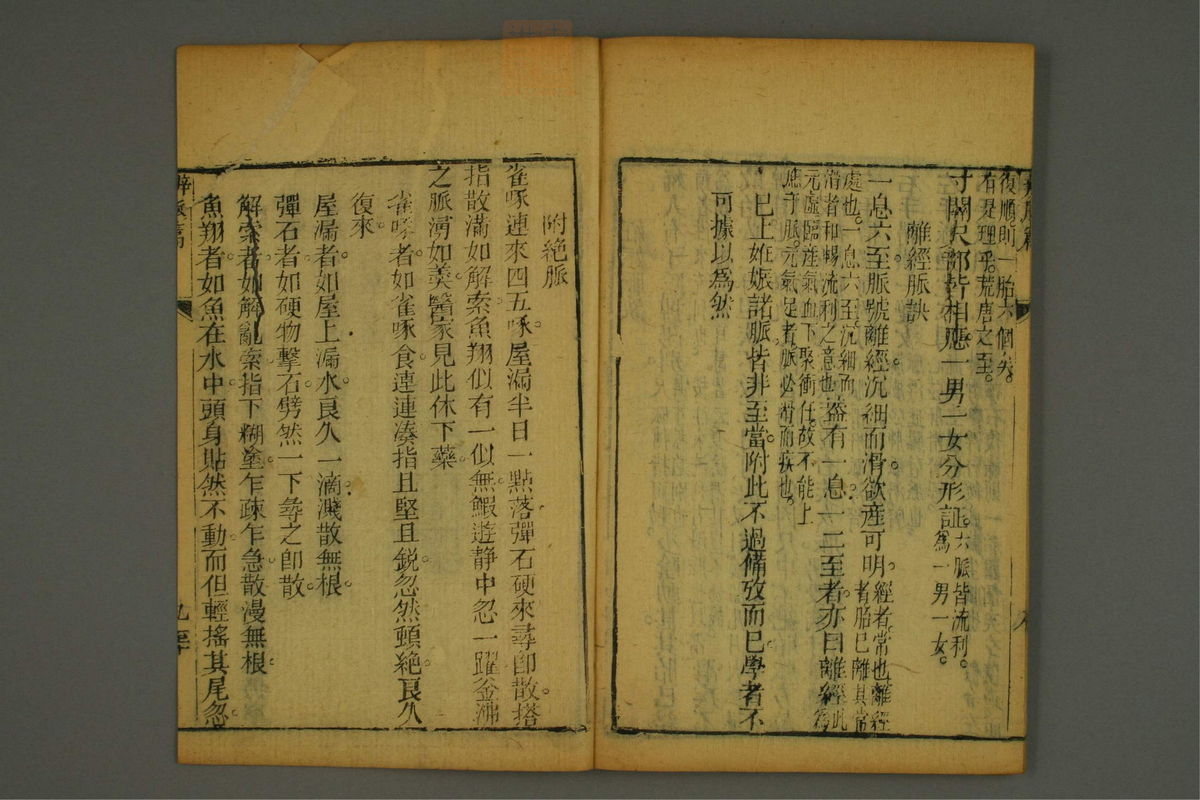 復順則一胎六個矣。
有是理乎。荒唐之至。
寸關尺部皆相應一男一女分形証。
六脈皆流利。
爲一男一女。
離經脈訣
一息六至脈號離經沉細而滑欲産可明。
經者常也離經
者胎已離其常
處也。一息六至沉細而
滑者和暢流利之意也
蓋有一息一二至者。亦曰離經。
此爲
元虛臨産氣血下聚衝任故不能上
應于脈。元氣足者。脈必滑而疾也。
已上姙娠諸脈皆非至當。附此不過備攷而已。學者不
可據以爲然
附絶脈
雀啄連來四五啄。屋漏半日一點落。彈石硬來尋卽散。搭
指散滿如解索。魚翔似有一似無。鰕遊静中忽一躍。釜沸
之脈湧如羹。醫家見此休下藥
雀啄者。如雀啄食。連連湊指。且堅且鋭。忽然頓絶。良久
復來。
屋漏者。如屋上漏水。良久一滴。濺散無根。
彈石者。如硬物擊石。劈然一下。尋之卽散。
解索者。如解亂索。指下糊塗。乍疎乍急。散漫無根。
魚翔者。如魚在水中。頭身貼然不動。而但輕搖其尾。忽